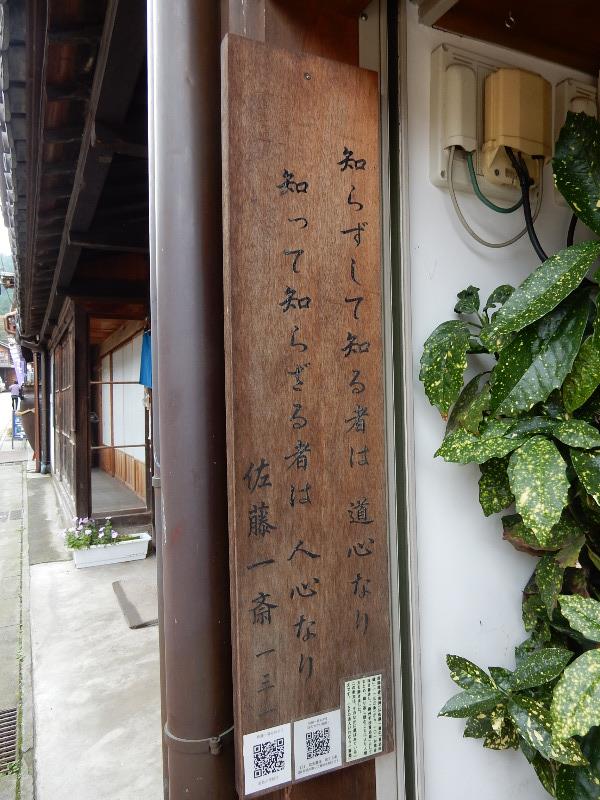 知らずして知る者は 道心なり
知って知らざる者は 人心なり
佐藤一斎 一三一